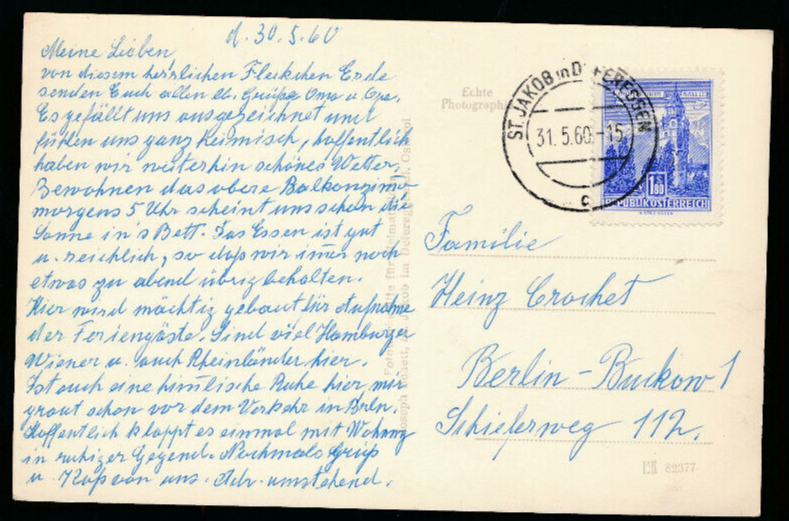 d. 30.5.60
Meine Lieben,
von diesem herrlichen Fleckchen Erde
senden Euch allen lb. Grüße Oma u. Opa.
Es gefällt uns ausgezeichnet und
fühlen uns ganz heimisch, hoffentlich
haben wir weiterhin schönes Wetter.
Bewohnen das obere Balkonzimm.
morgens 5 Uhr scheint uns schon die
Sonne in's Bett. Das Essen ist gut
u. reichlich, so daß wir im̄er noch
etwas zu abend übrig behalten.
Hier wird mächtig gebaut für Aufnahme
der Feriengäste. Sind viel Hamburger
Wiener u. auch Rheinländer hier.
Ist auch eine himlische Ruhe hier, mir
graut schon vor dem Verkehr in Brln.
Hoffentlich klappt es einmal mit Wohng
in ruhiger Gegend. Nochmals Grüße
u. Küße von uns. Adr. umstehend.
Echte
Photographie
ST. JAKOB in DEFEREGGEN
31.5.60.-15
c
1.80
REPUBLIK ÖSTERREICH
Familie
Heinz Crochet
Berlin-Buckow 1
Schieferweg 112.
82377